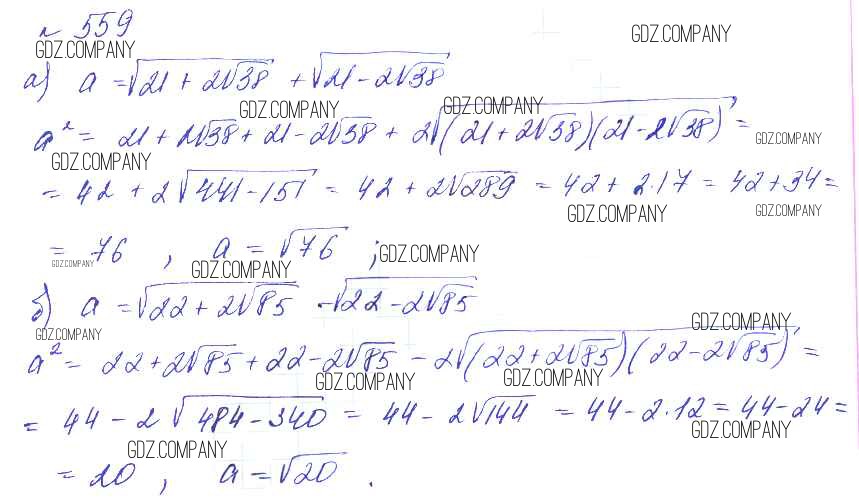 № 559
GDZ.COMPANY GDZ.COMPANY
а) a = √(21 + 2√38) + √(21 - 2√38)
GDZ.COMPANY GDZ.COMPANY
a² = 21 + 2√38 + 21 - 2√38 + 2√((21 + 2√38)(21 - 2√38)) =
GDZ.COMPANY GDZ.COMPANY
= 42 + 2√(441 - 151) = 42 + 2√289 = 42 + 2·17 = 42 + 34 =
GDZ.COMPANY GDZ.COMPANY
= 76 , a = √76 ;
GDZ.COMPANY GDZ.COMPANY GDZ.COMPANY
б) a = √(22 + 2√85) - √(22 - 2√85)
GDZ.COMPANY GDZ.COMPANY
a² = 22 + 2√85 + 22 - 2√85 - 2√((22 + 2√85)(22 - 2√85)) =
GDZ.COMPANY GDZ.COMPANY
= 44 - 2√(484 - 340) = 44 - 2√144 = 44 - 2·12 = 44 - 24 =
GDZ.COMPANY GDZ.COMPANY
= 20 , a = √20 .